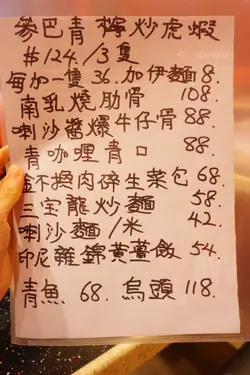 參巴青檸炒虎蝦
#124./3隻
每加一隻36.加伊麵8.
南乳燒肋骨 108.
喇沙醬爆牛仔骨 88.
青咖喱青口 88.
金不換肉碎生菜包 68.
三宝龍炒麵 58.
喇沙麵/米 42.
印尼雜錦黃薑飯 54.
青魚 68. 烏頭 118.